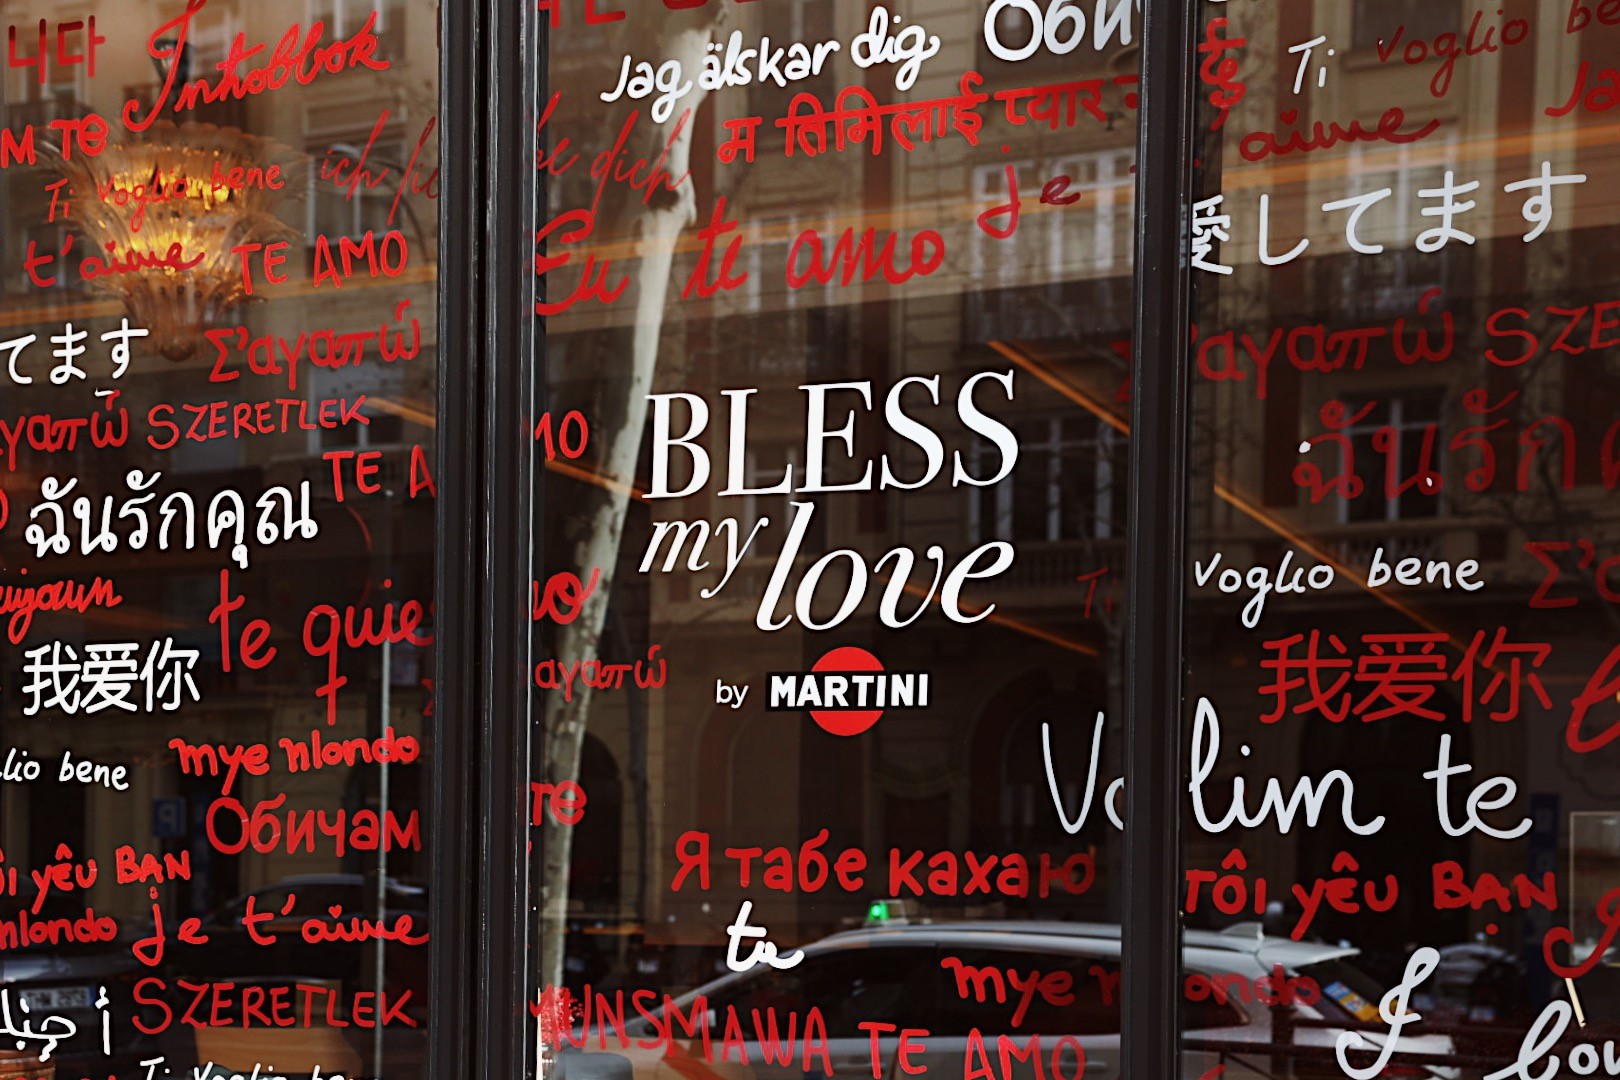 니다 Inhobbok
м тө
Ti voglio bene
t'aime TE AMO
てます Σ'αγαπώ
γαπώ SZERETLEK
TE A
ฉันรักคุณ
te quie
我爱你
lio bene mye nlondo
Обичам
ôi yêu BẠN
nlondo je t'aime
SZERETLEK
Ti voglio be
Jag älskar dig Оби
म तिमिलाई प्यार
dich
Eu te amo je
MO
BLESS
my love
αγαπώ
by MARTINI
те
Я табе кахаю
te
mye n
UNSMAWA TE AMO
Ti voglio be
aime Ja
愛してます
'αγαπώ SZE
ฉันรัก
voglio bene Σ'
我爱你
Volim te
TÔI yêu BẠN
ondo
I
lou